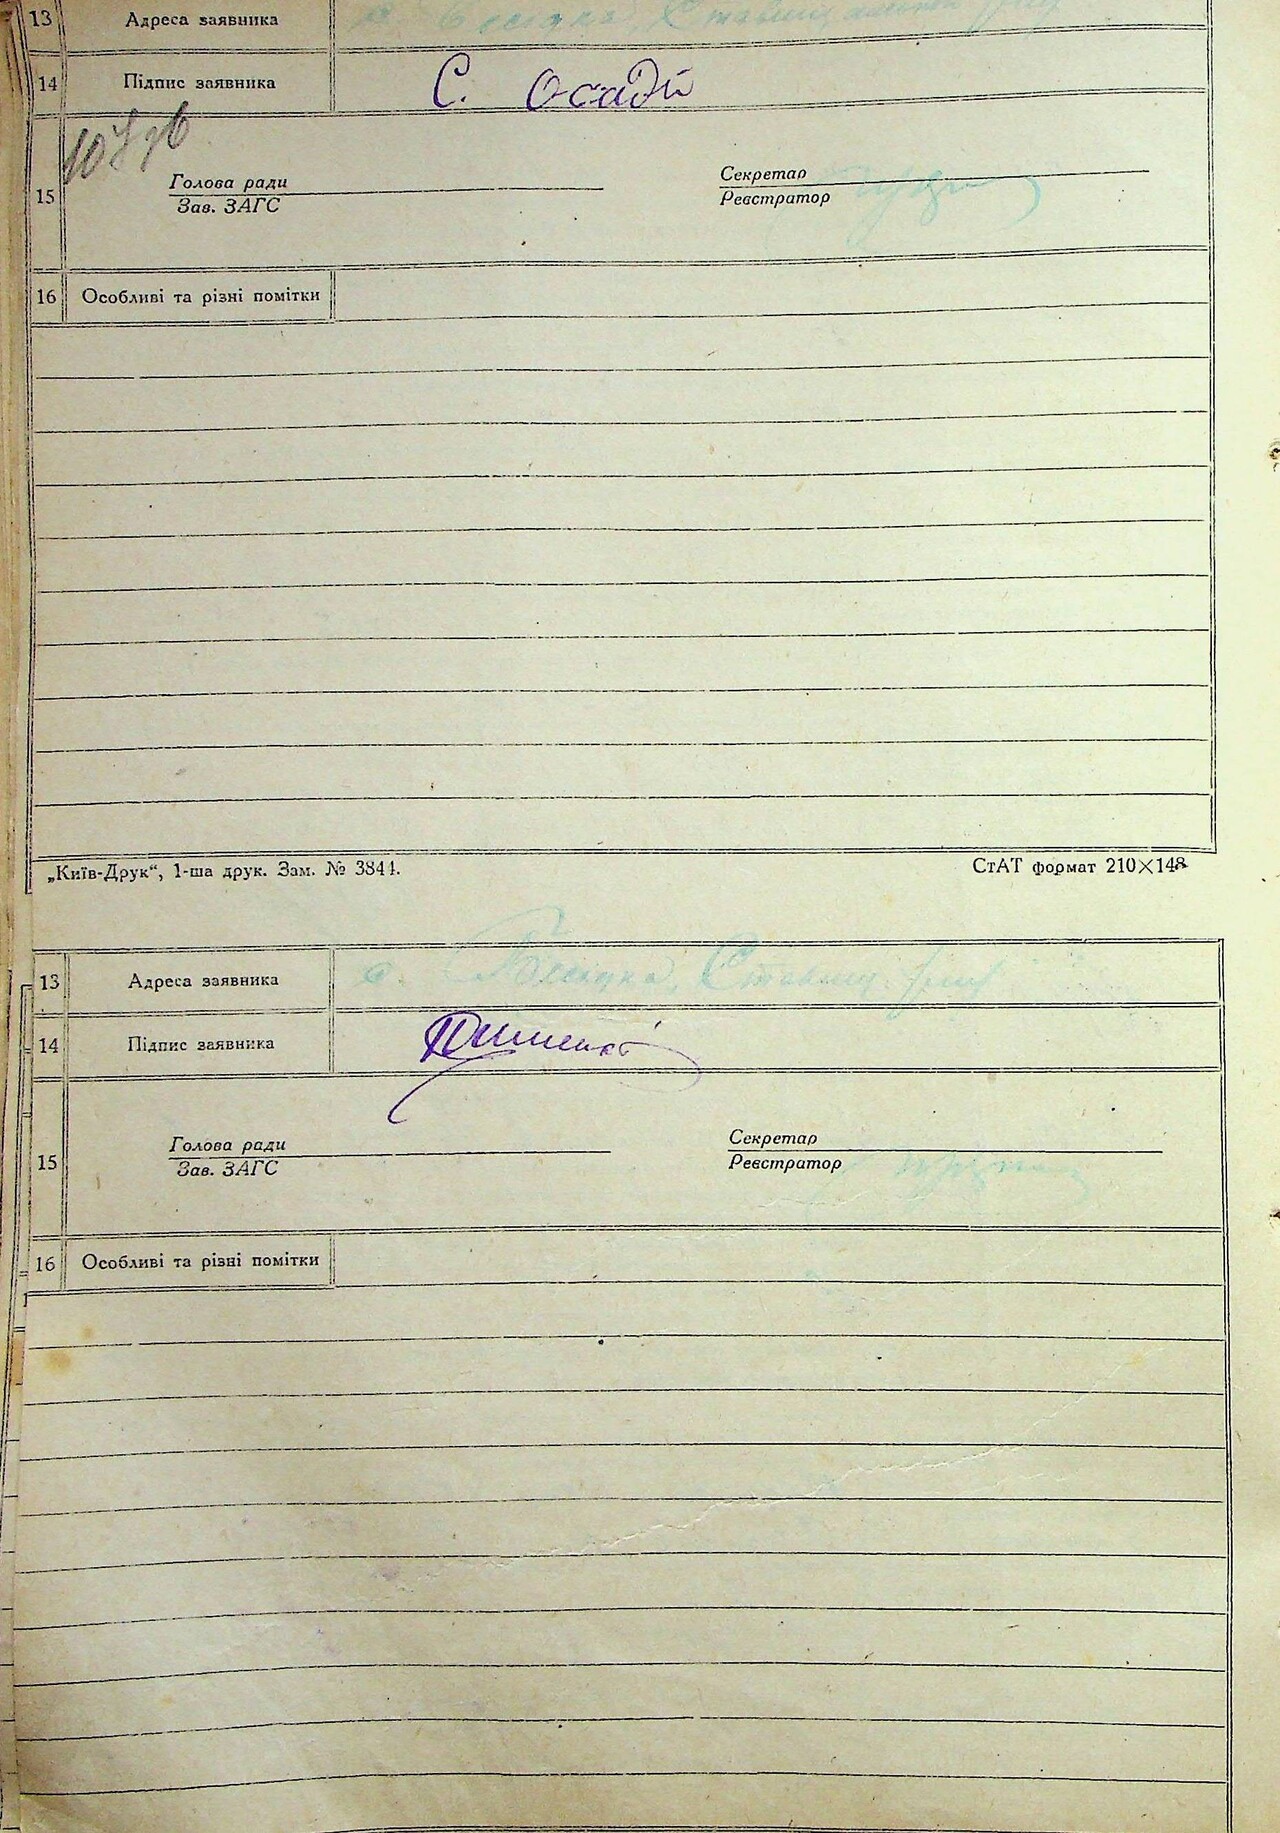 13 Адреса заявника с. Бесідка, Ставищанський
14 Підпис заявника С. Осадч
15 Голова ради Секретар
Зав. ЗАГС Реєстратор
16 Особливі та різні помітки
„Київ-Друк“, 1-ша друк. Зам. № 3844. СтАТ формат 210×148
13 Адреса заявника с. Бесідка, Ставищ.
14 Підпис заявника
15 Голова ради Секретар
Зав. ЗАГС Реєстратор
16 Особливі та різні помітки